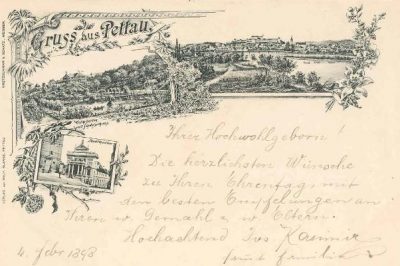 Gruss aus Pettau.
Ihrer Hochwohlgeborn!
Die herzlichsten Wünsche
zu Ihrem Ehrentag, mit
den besten Empfehlungen an
Ihren w. Gemahl u. w. Eltern.
Hochachtend Jos Kasimir
4. Febr 1898
samt Familie